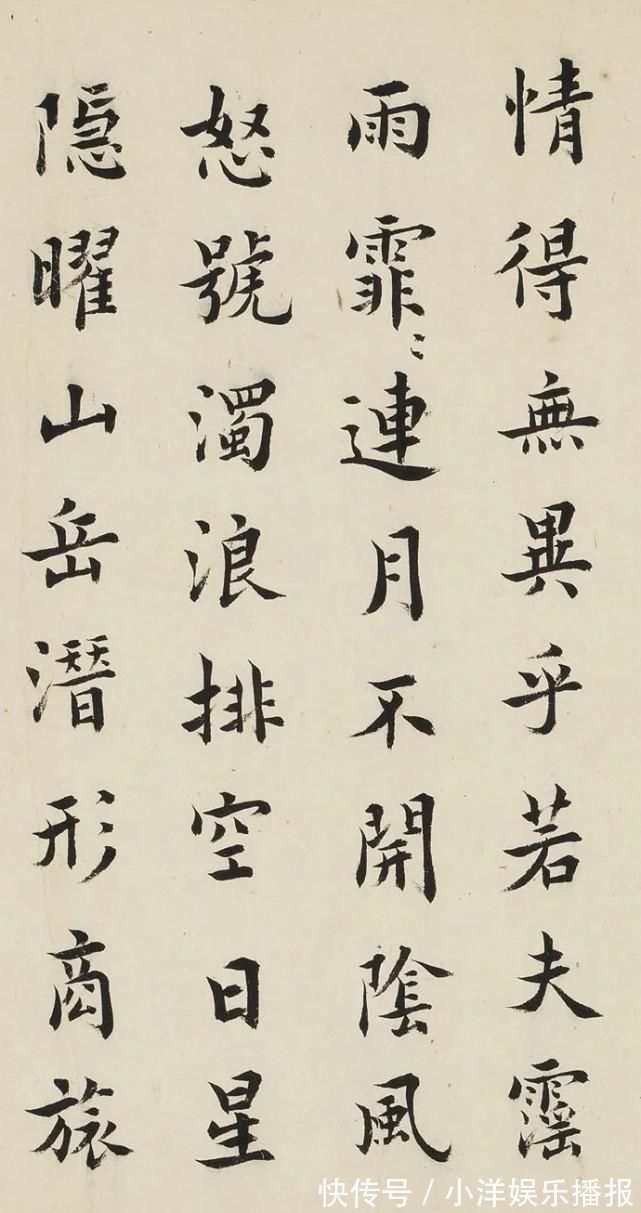 情得無異乎若夫霪
雨霏〻連月不開陰風
怒號濁浪排空日星
隱曜山岳潛形商旅
快传号/小洋娱乐播报